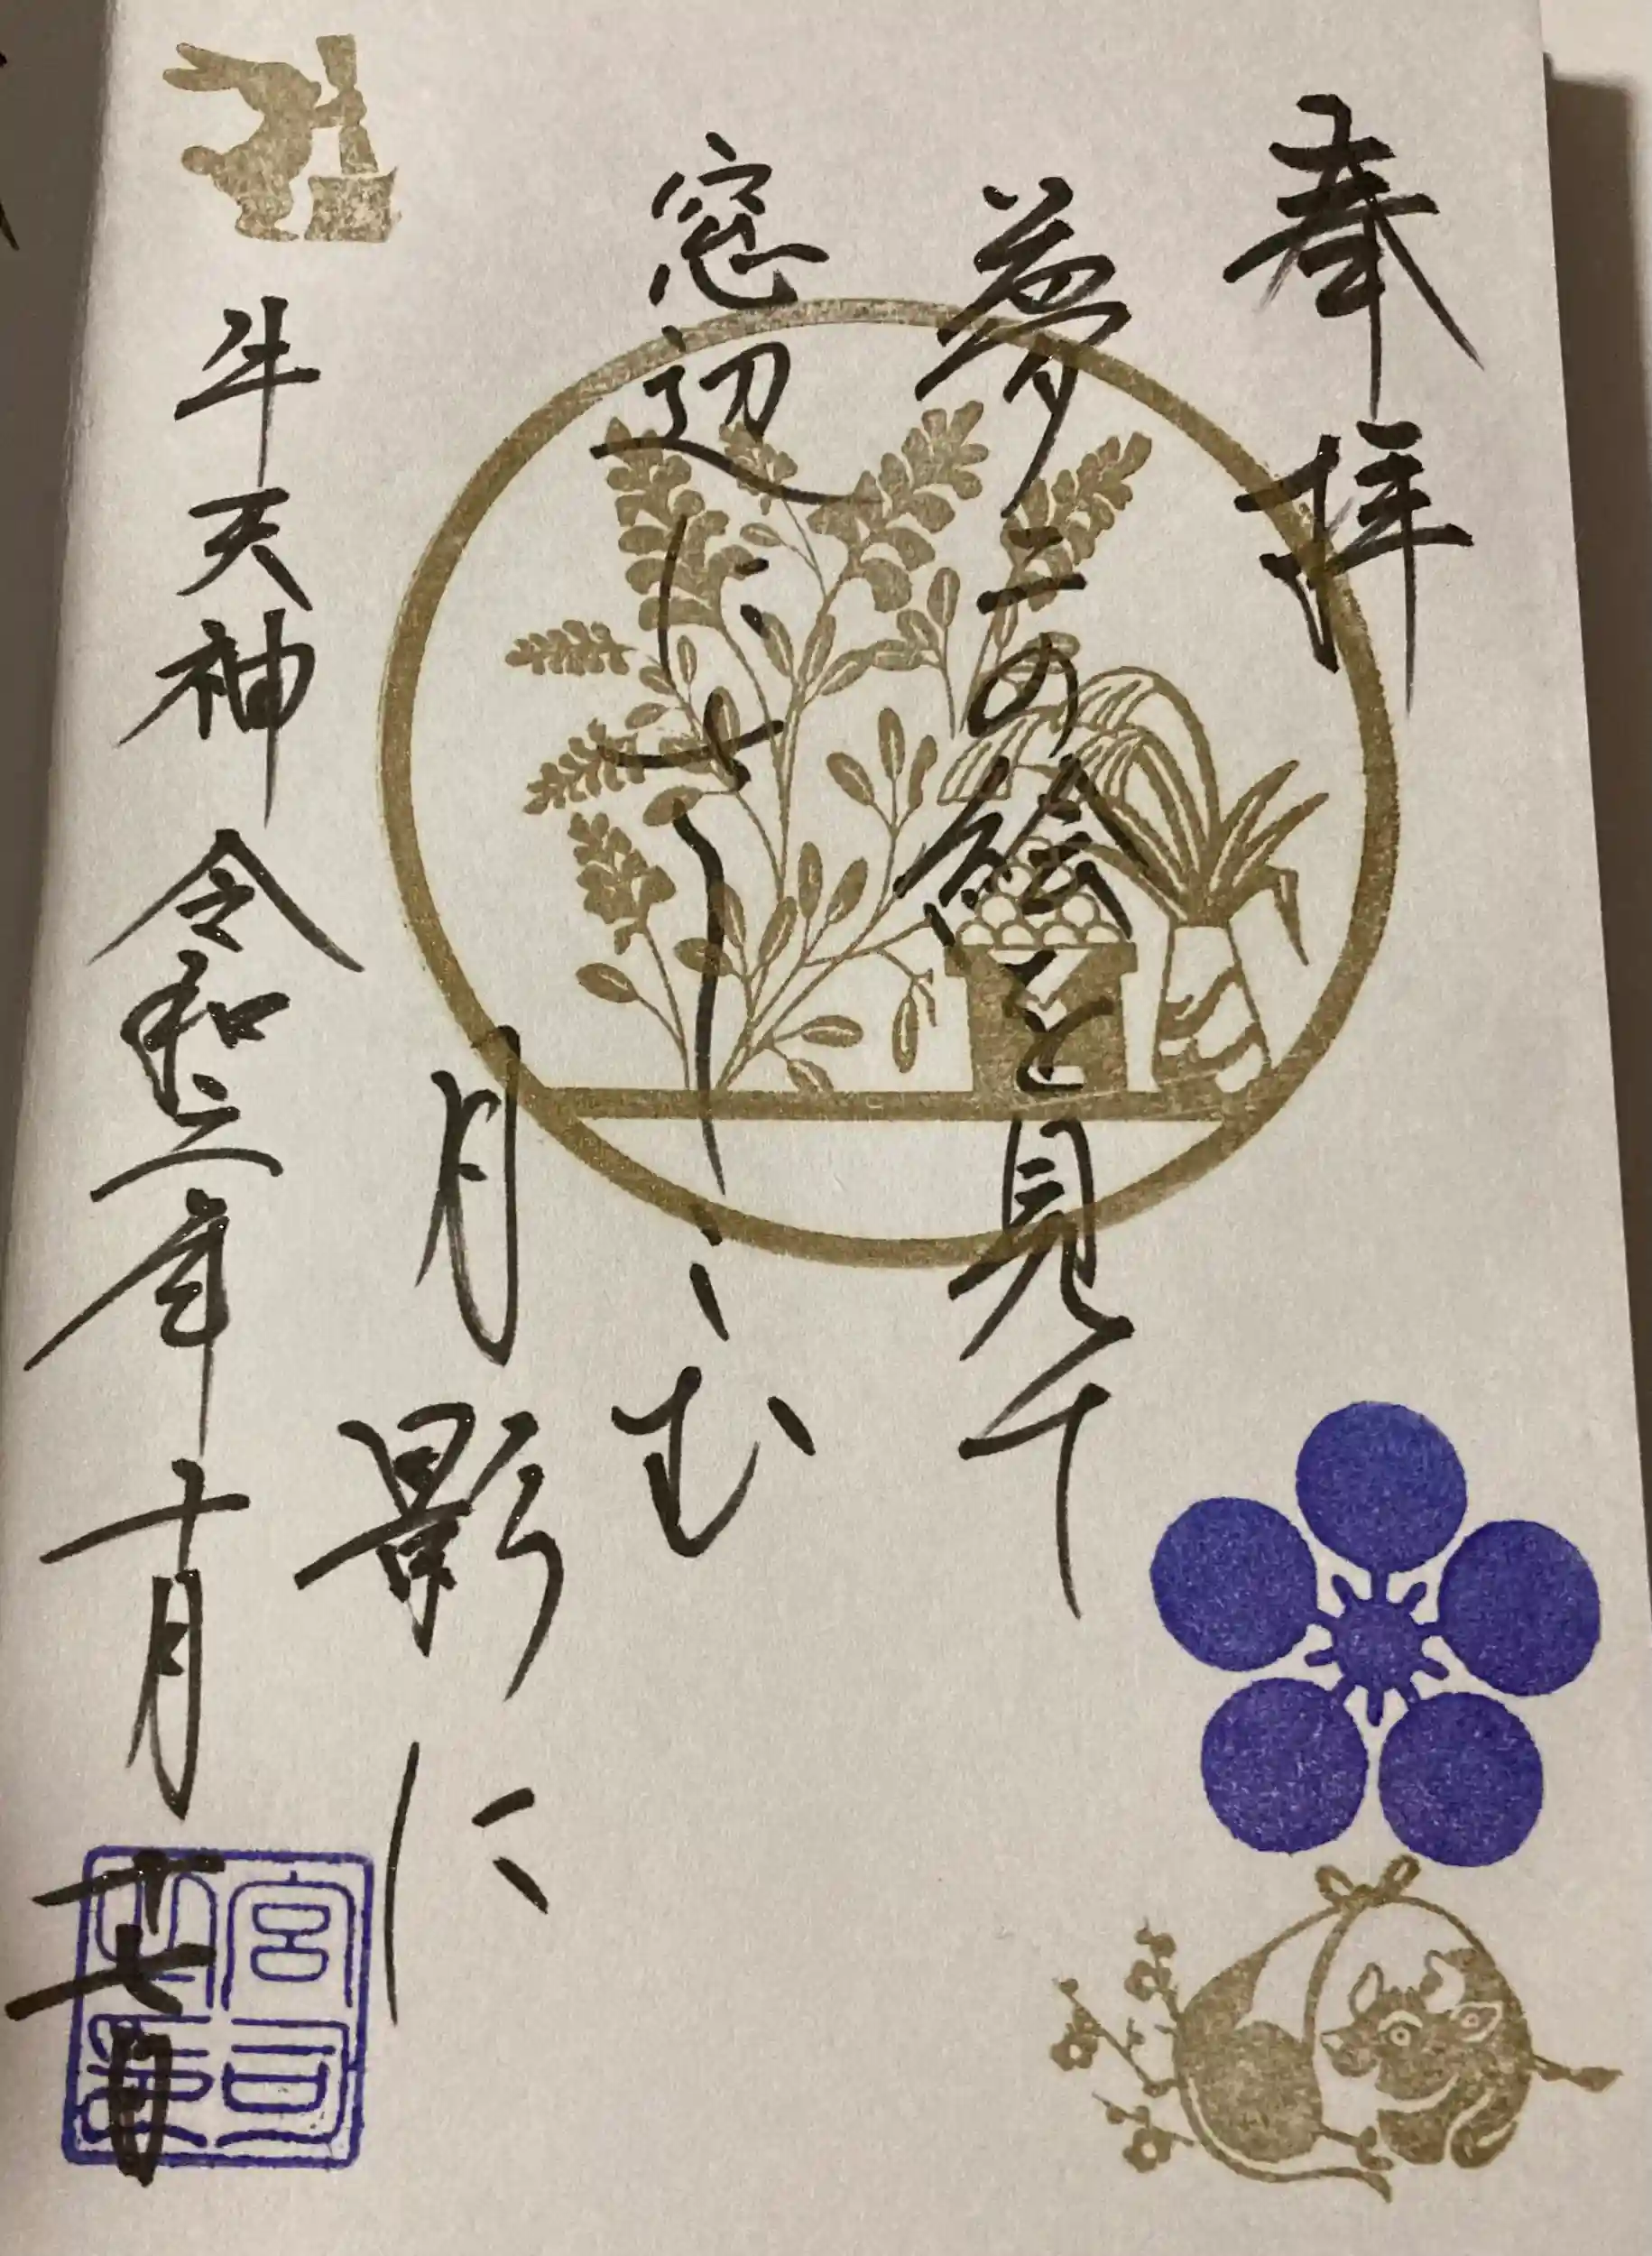 奉拝
夢二の絵を見
窓辺にさしこむ
月影に
牛天神 令和三年十月十七日
宮司之印